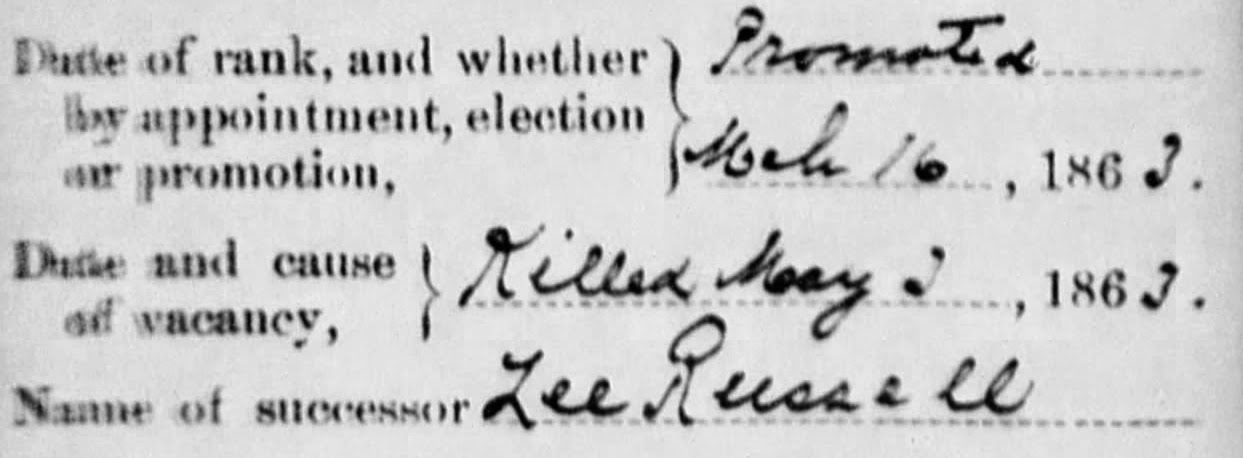 Date of rank, and whether } Promoted
by appointment, election
or promotion, Mch 16, 1863.
Date and cause } Killed May 3, 1863.
of vacancy,
Name of successor Lee Russell